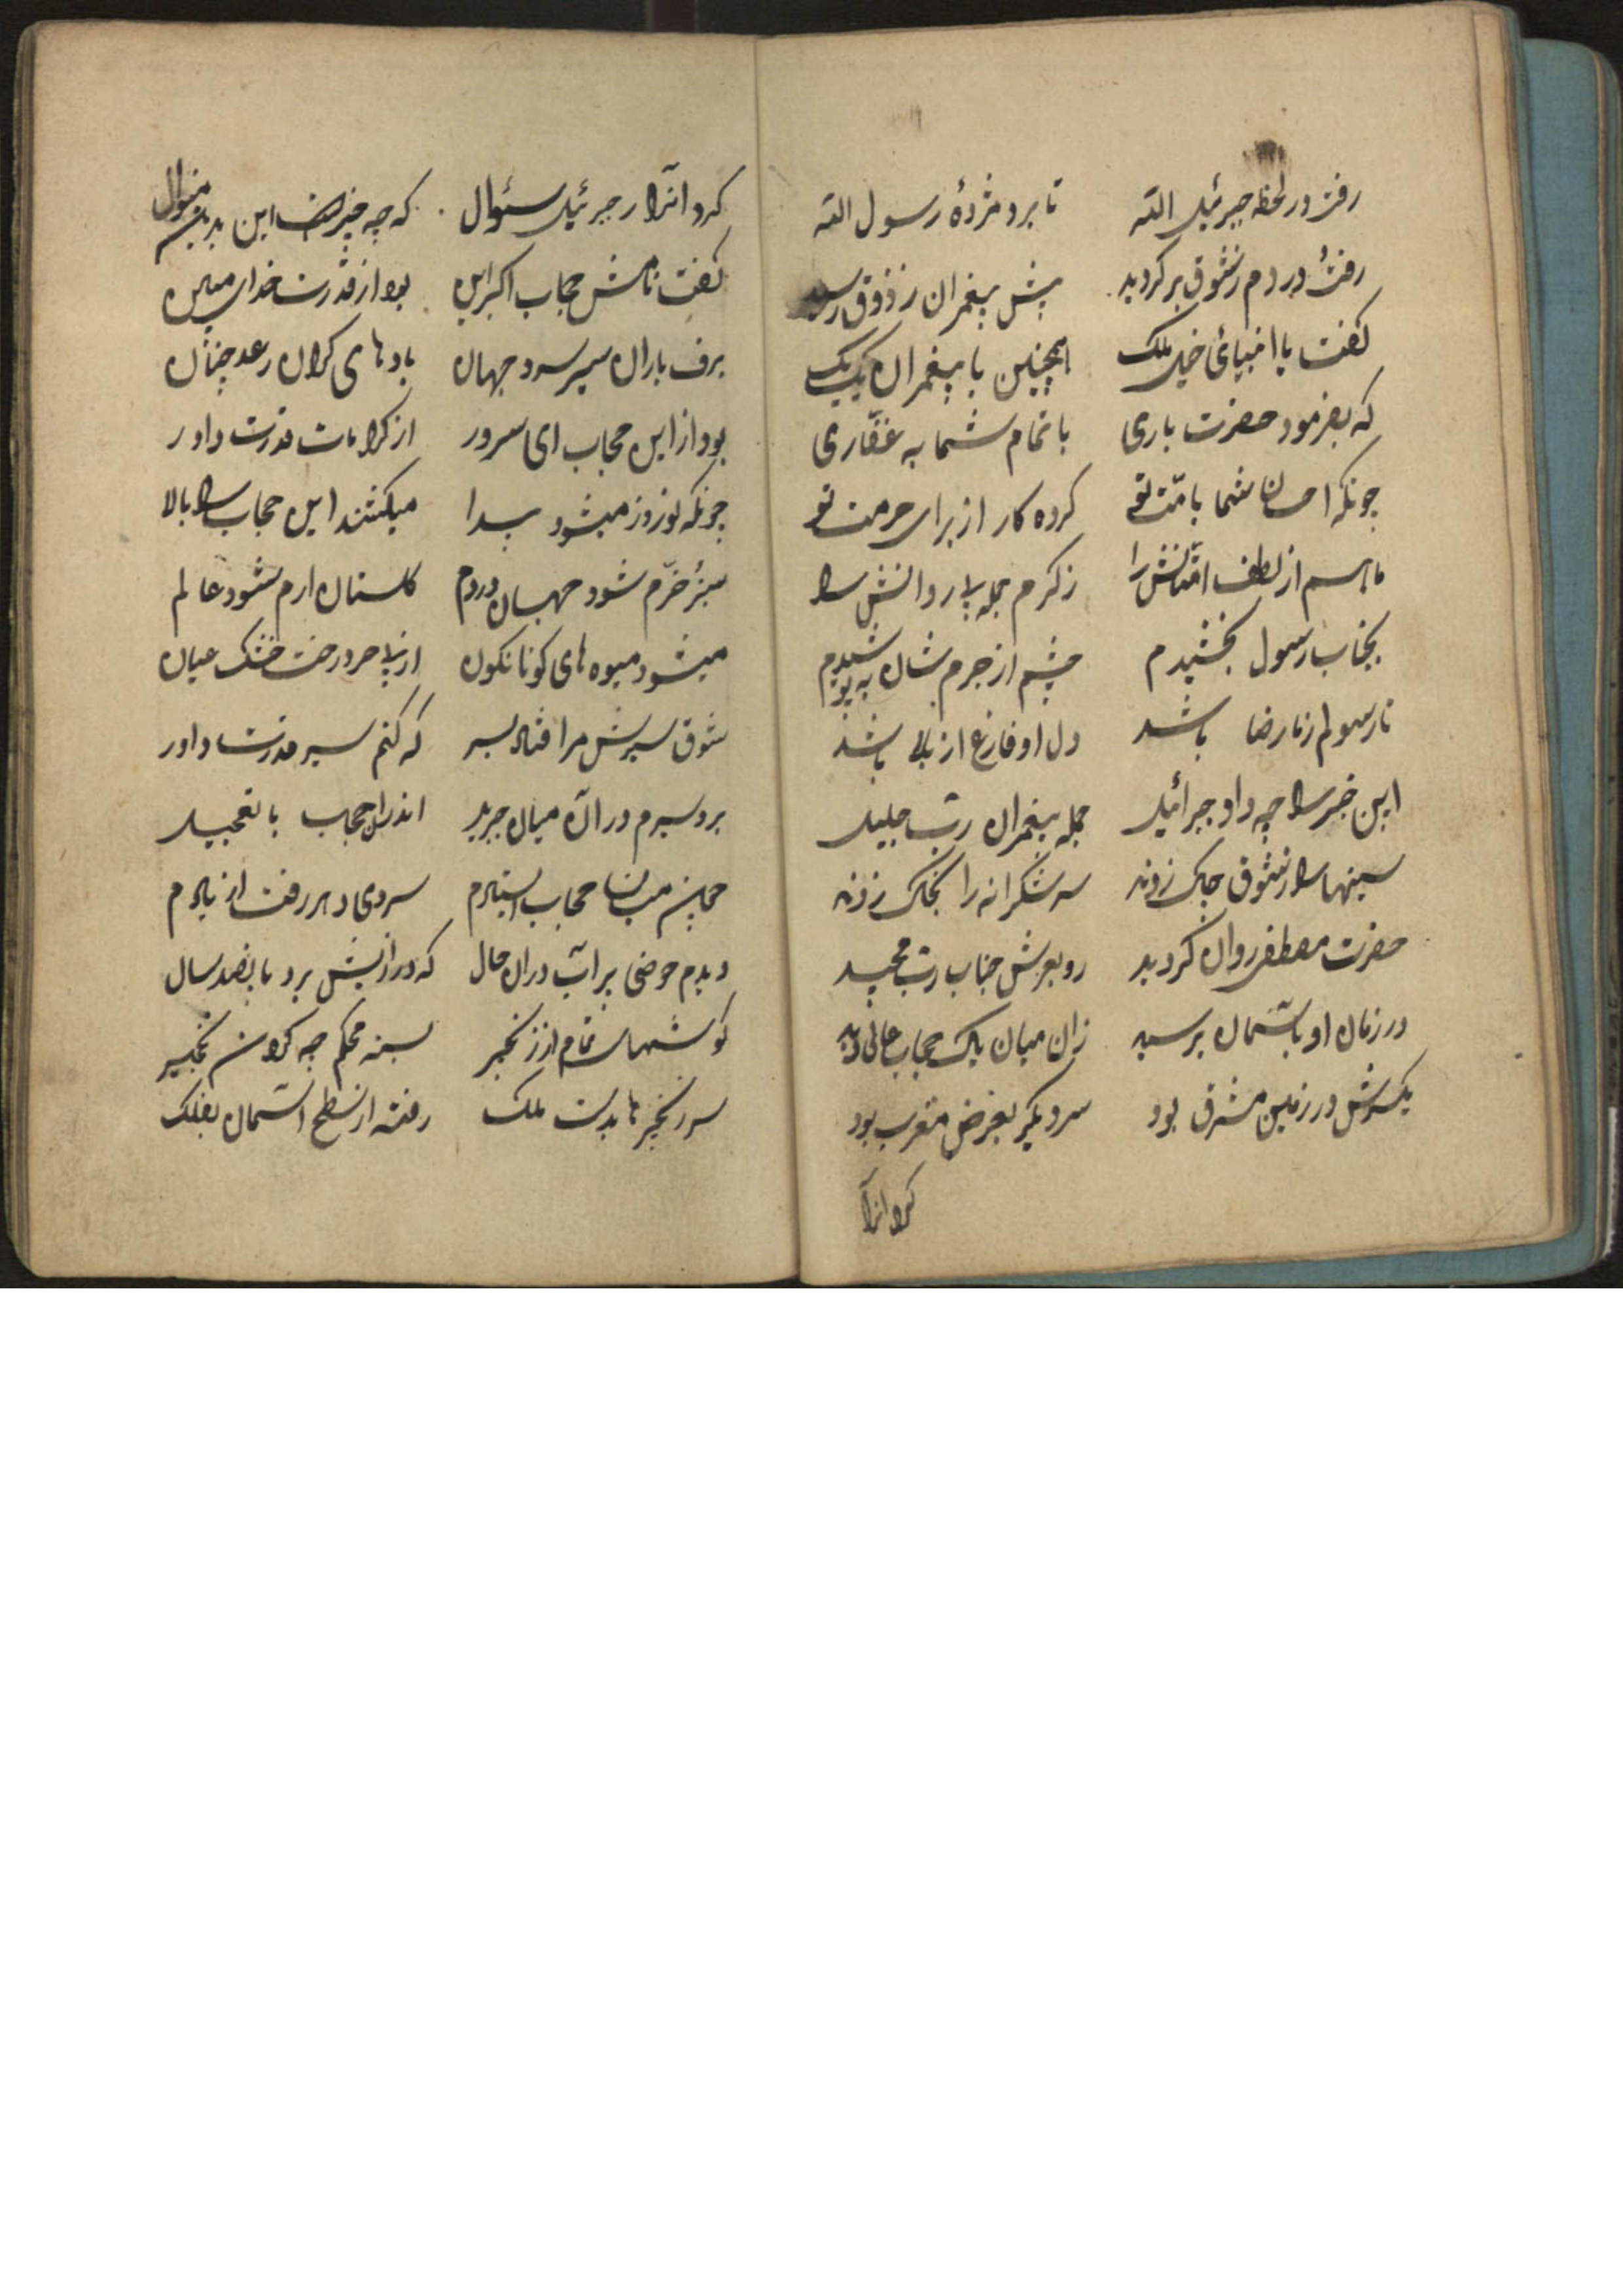 رفت در لحظه جبرئیل الله تا برد مژدهٔ رسول الله
رفتهٔ در دم ز شوق برکردید پیش پیغمبران ز ذوق رسید
کفت با انبیائی خیل ملک اینچنین با پیغمبران یک یک
که بفرمود حضرت باری با تمام شما به غفّاری
چونکه احسان شما بامّت تو کرده کار از برای حرمت تو
ما هم از لطف امّتانش را ز کرم جمله روانش را
بجناب رسول بخشیدم چشم از جرم شان به پوشیدم
تا رسولم ز ما رضا باشد دل او فارغ از بلا باشد
این خبر را چه داد جبرائیل جمله پیغمبران ربّ جلیل
سینها را ز شوق چاک زدند سه شکرانه را بخاک زدند
حضرت مصطفی روان کردید رو بعرش جناب ربّ مجید
در زمان او بآسمان برسید زان میان یک حجاب عالی دید
یکسرش در زمین مشرق بود سر دیکر بعرض مغرب بود
کرد آنرا
کرد آنرا ز جبرئیل سئوال که چه چیز است این بدین منوال
کفت نامش حجاب اکبر این بود از قدرت خدای مبین
برف باران سیر سرد جهان بادهای کران رعد چنان
بود از این حجاب ای سرور از کرامات قدرت داور
چونکه نوروز میشود پیدا میکشند این حجاب را بالا
سبزهٔ خرّم شود جهان در دم کلستان ارم شود عالم
میشود میوه های کوناکون از درخت خشک عیان
شوق سیرش مرا فتاد بسر که کنم سیر قدرت داور
بردسیرم در آن میان جبرید اندران حجاب با تعجیل
حجاب استادم سردی دهر رفت از یادم
دیدم حوضی پر آب دران حال که درازیش برد پانصد سال
کوشهاش تمام از زنجیر بسته محکم چه کردن نخجیر
سر زنجیرها بدست ملک رفته از سطح آسمان بفلک